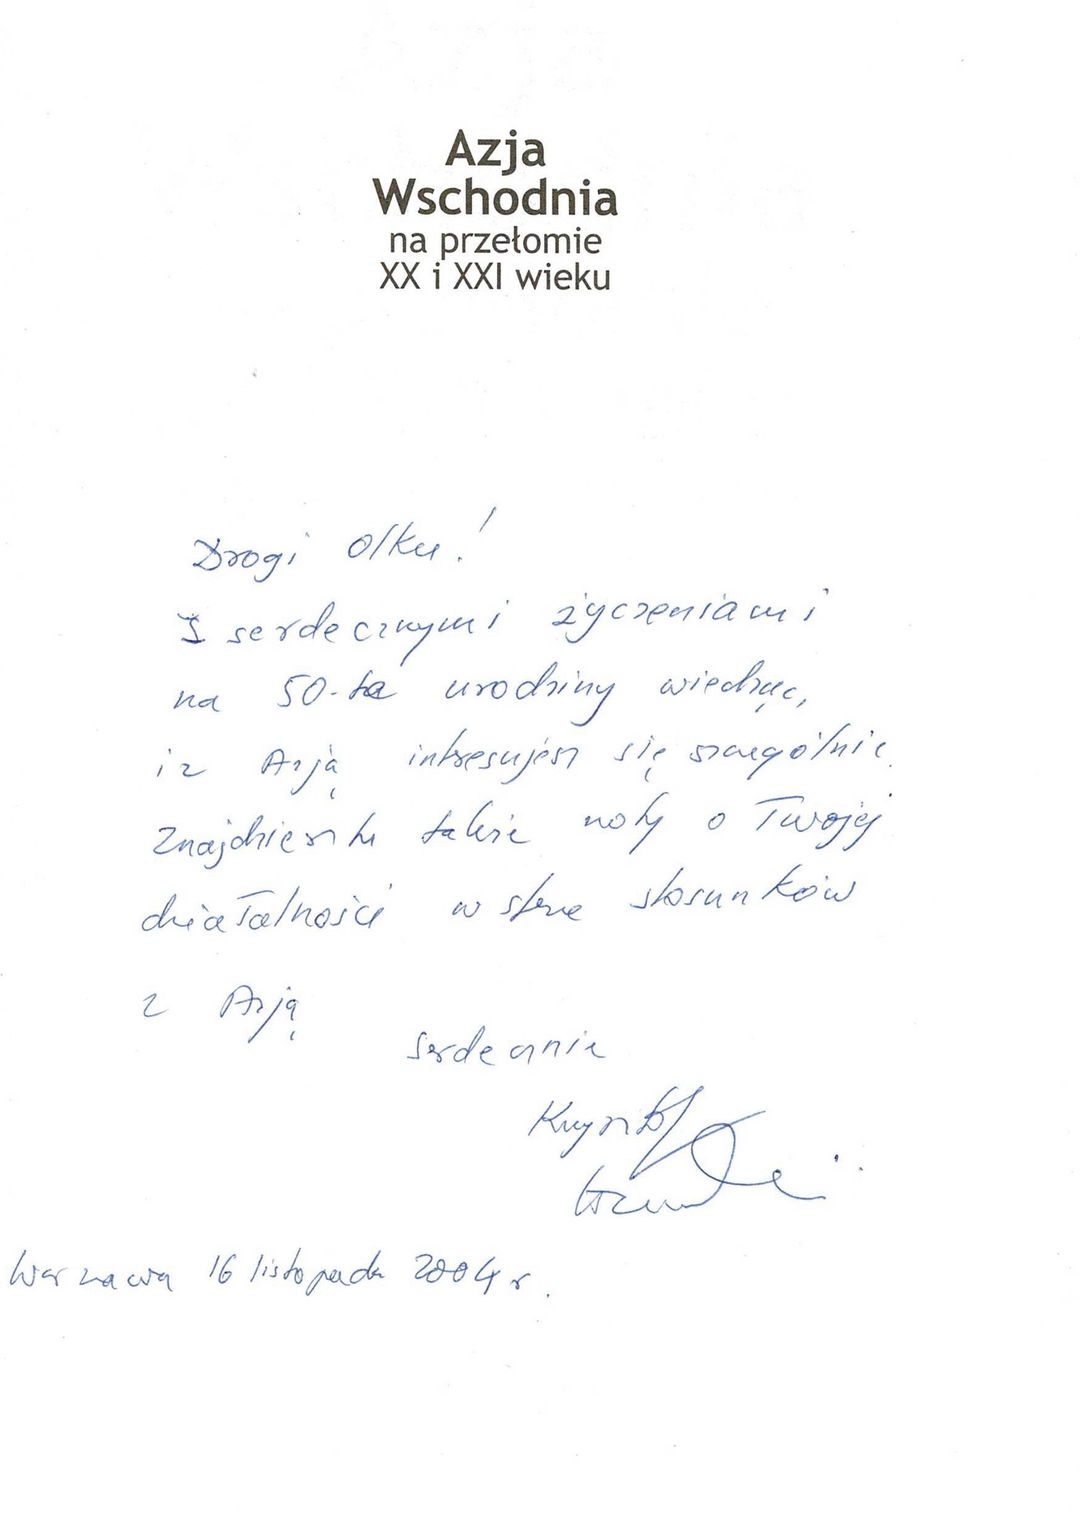 Azja
Wschodnia
na przełomie
XX i XXI wieku
Drogi Olku!
Z serdecznymi życzeniami
na 50-te urodziny wiedząc,
iż Azją intresujesz się szczególnie.
Znajdziesz tu także noty o Twojej
działalności w sferze stosunków
z Azją
Serdecznie
Krzysztof
Warszawa 16 listopada 2004 r.